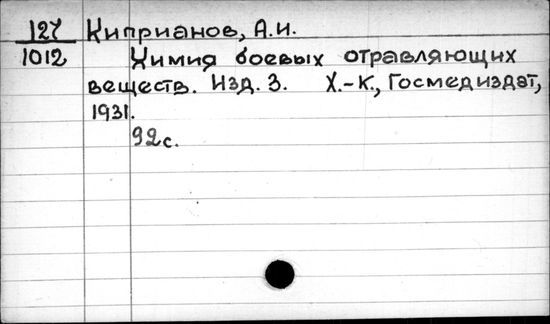 127 Киприанов, А.И.
1012 Химия боевых отравляющих
веществ. Изд. 3. Х.-К., Госмедиздат,
1931.
92с.